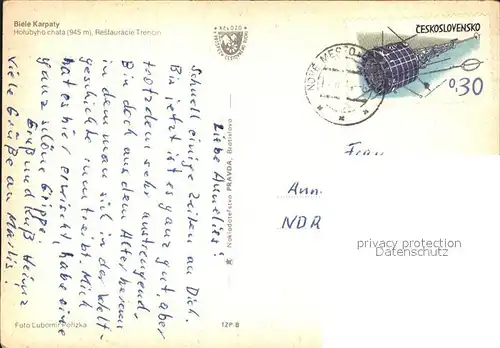 Biele Karpaty
Holubyho chata (945 m). Reštaurácie Trenčín
ČESKOSLOVENSKO
0,30
NOVÉ MESTO
Liebe Annelies!
Schnell einige Zeilen an Dich.
Bis jetzt ist es ganz gut, aber
trotzdem sehr anstrengend.
Bin doch aus dem Alter heraus
in dem man sich in der Welt-
geschichte rumtreibt. Mich
hat es hier erwischt, habe eine
ganz schöne Grippe.
Gruß und Kuß Heinz
Viele Grüße an Martis!
Frau
Ann.
NDR
Nakladateľstvo PRAVDA, Bratislava
Foto Lubomír Pořízka
TZP 8
privacy protection
Datenschutz